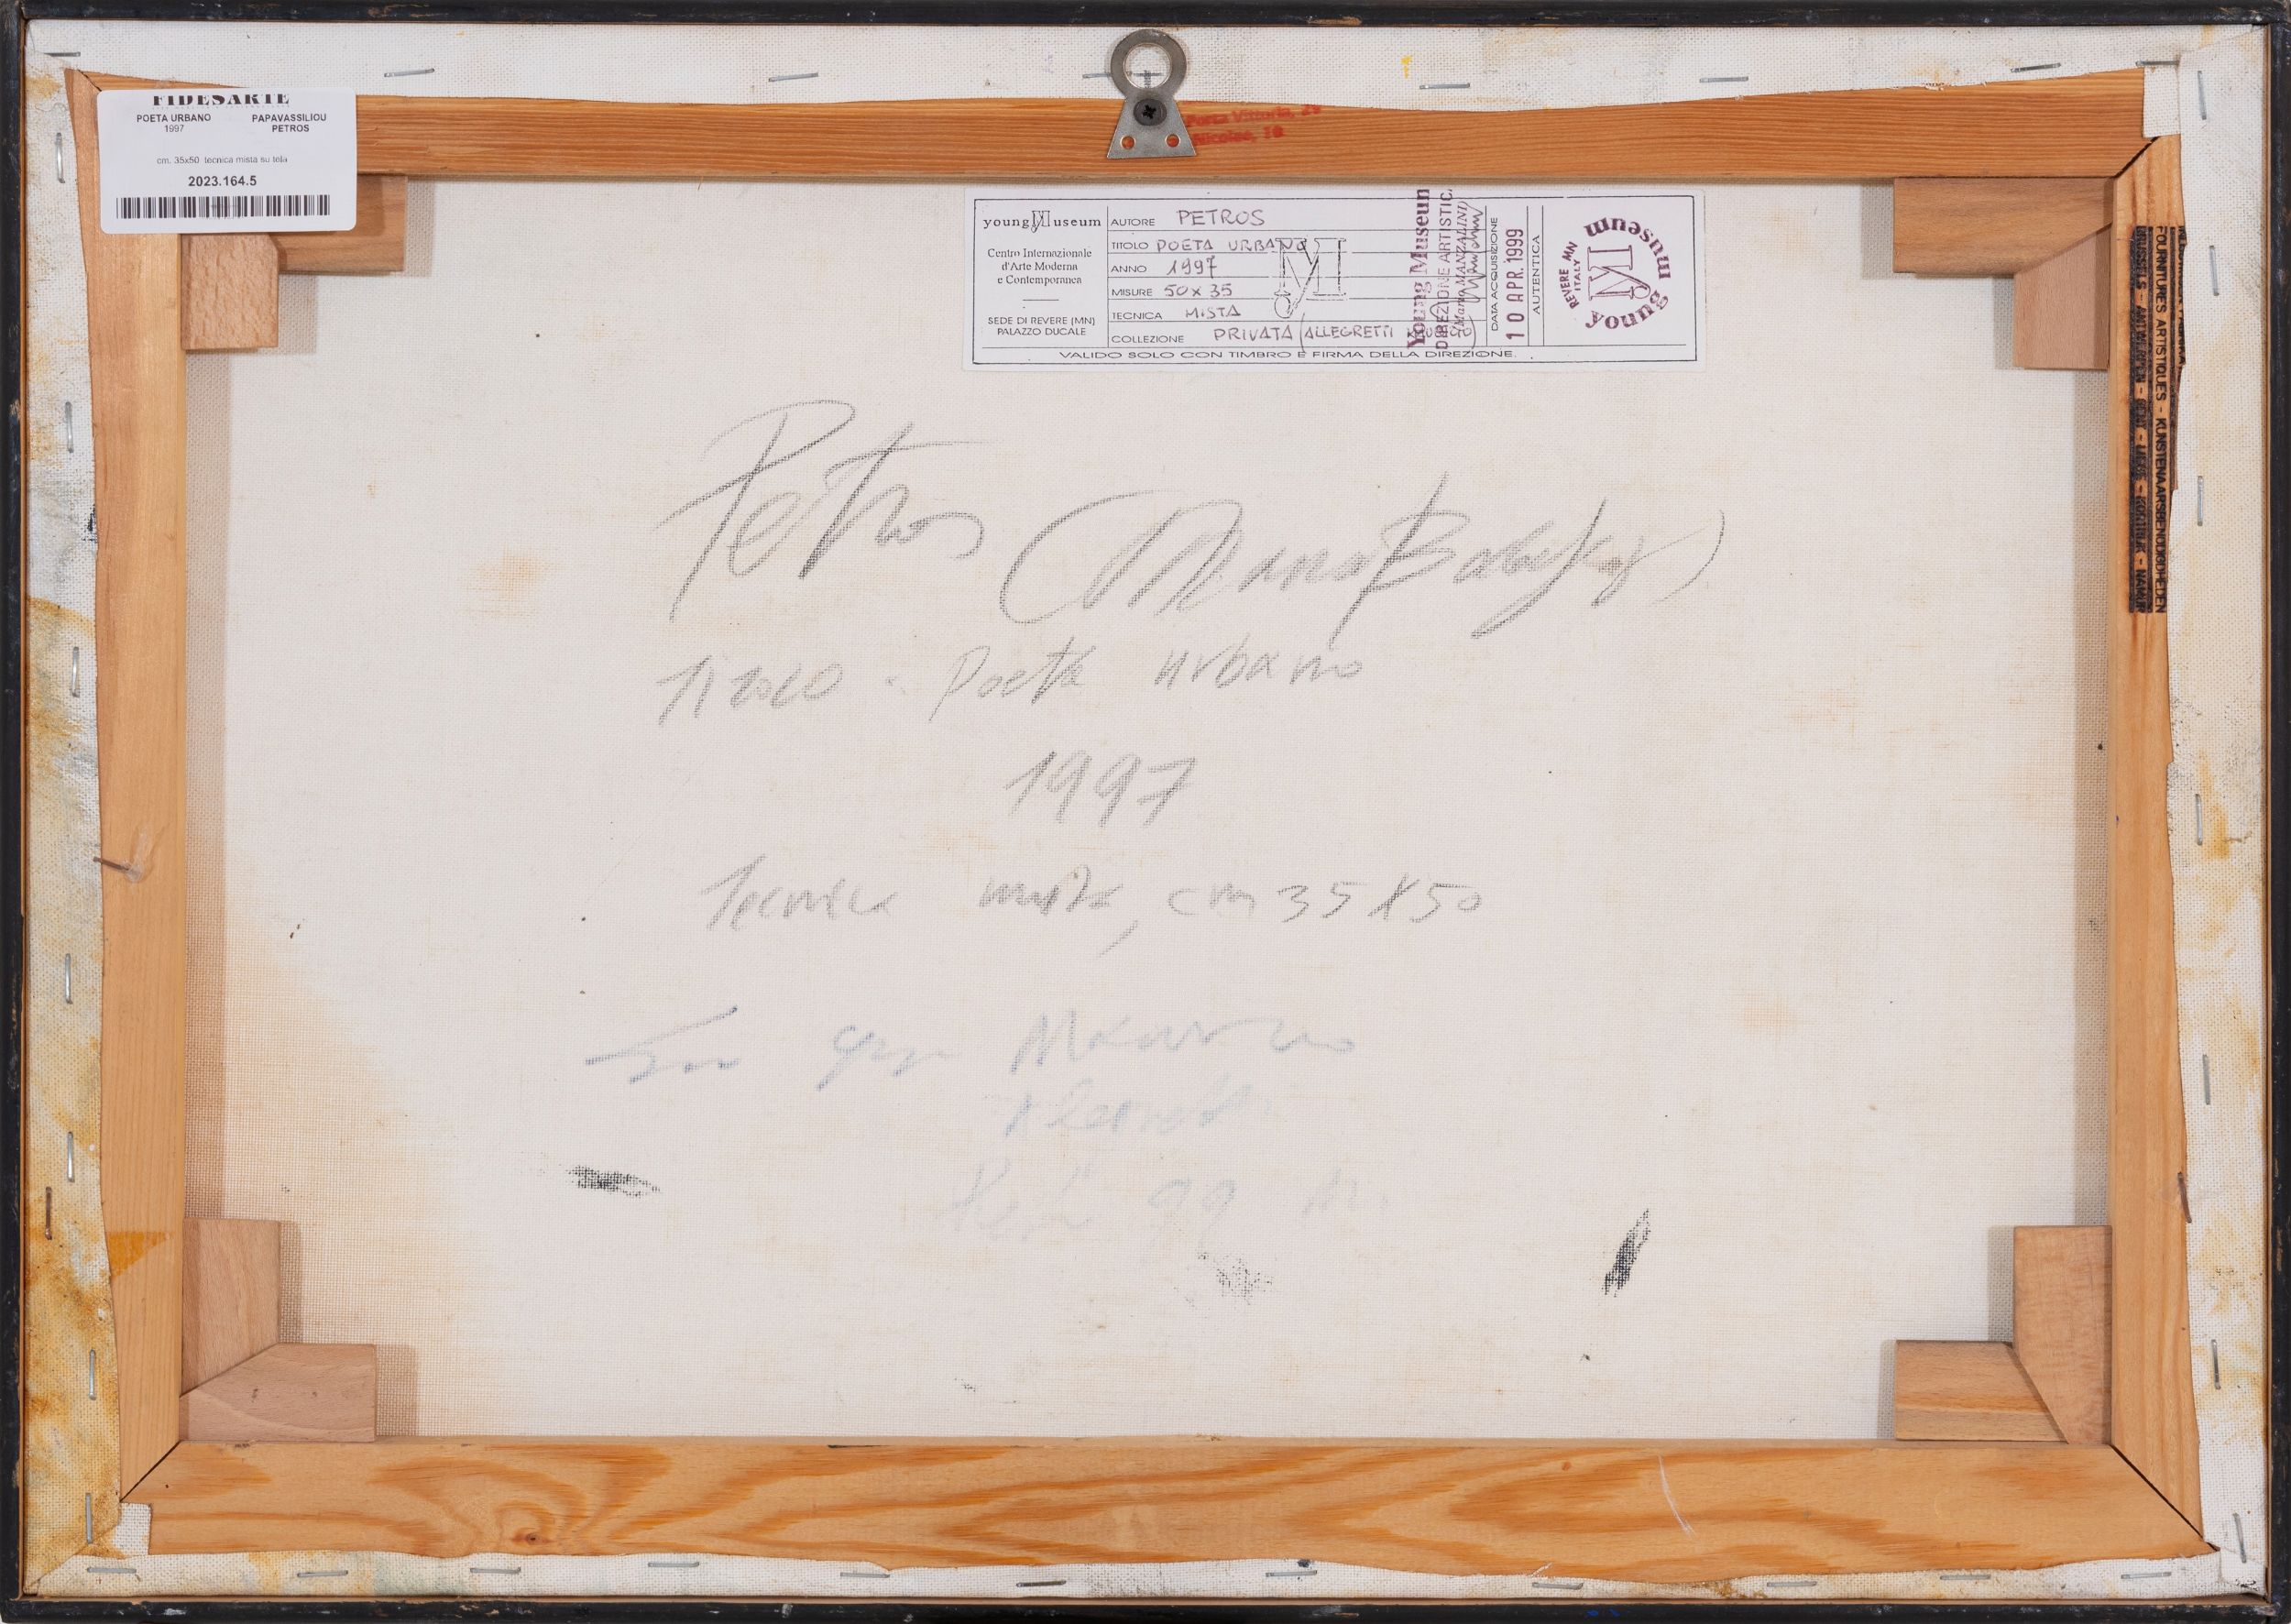 FIDESARTE
POETA URBANO PAPAVASSILIOU
1997 PETROS
cm. 35x50 tecnica mista su tela
2023.164.5
Porta Vittoria,
Nicolao, 10
youngMuseum
Centro Internazionale
d'Arte Moderna
e Contemporanea
SEDE DI REVERE (MN)
PALAZZO DUCALE
AUTORE PETROS
TITOLO POETA URBANO
ANNO 1997
MISURE 50x35
TECNICA MISTA
COLLEZIONE PRIVATA (ALLEGRETTI
VALIDO SOLO CON TIMBRO E FIRMA DELLA DIREZIONE.
Young Museum
DIREZIONE ARTISTICA
(Mario MANZALINI)
DATA ACQUISIZIONE
10 APR. 1999
AUTENTICA
young museum
REVERE MN
ITALY
yM
FOURNITURES ARTISTIQUES - KUNSTENAARSBENODIGDHEDEN
BRUSSELS - ANTWERPEN - GENT - LIEGE - KORTRIJK - NAMUR
Petros
Titolo - Poeta urbano
1997
Tecnica mista, cm 35x50
99